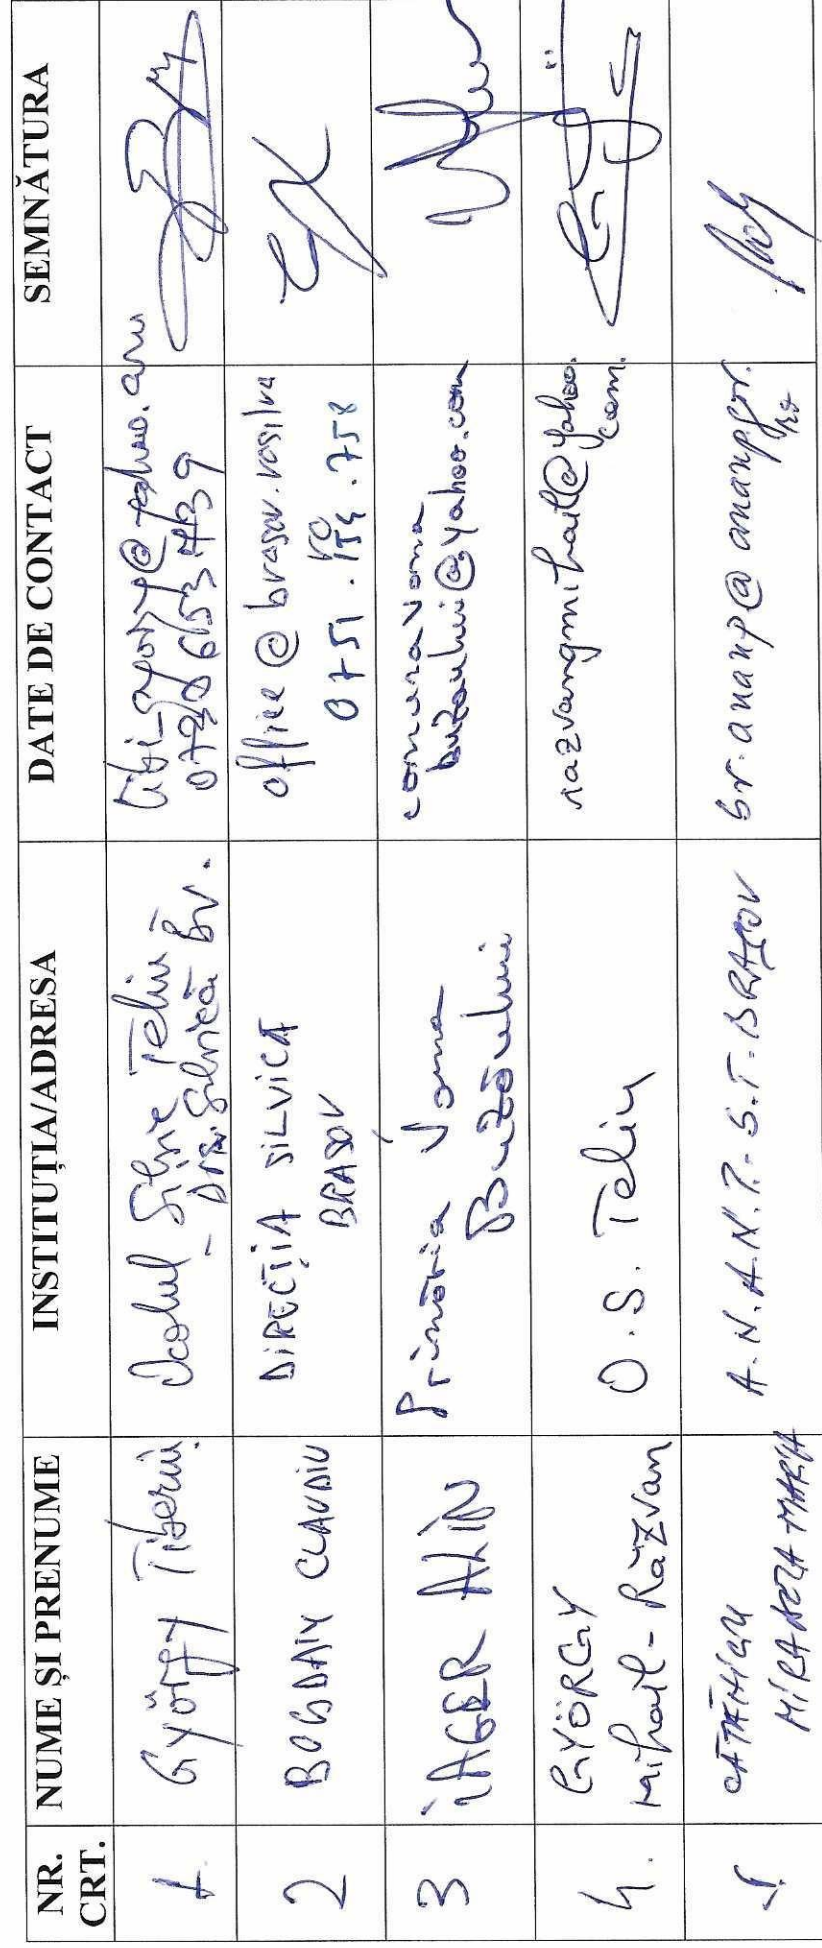 NR. CRT.
NUME ȘI PRENUME
INSTITUȚIA/ADRESA
DATE DE CONTACT
SEMNĂTURA
1
György Tiberiu
Ocolul Silvic Teliu
- Dir. Silvică Bv.
2
BOGDAN CLAUDIU
DIRECȚIA SILVICA
BRASOV
office@brasov.rosilva
.ro
0751.154.758
3
IAGER ALIN
Primăria Vama
Buzăului
comunavama
buzaului@yahoo.com
4.
GYÖRGY
Mihail-Răzvan
O.S. Teliu
razvangmihail@yahoo.
com.
5.
MIRABELA MARIA
A.N.A.N.P. - S.T. BRAȘOV
bv.ananp@ananp.gov.
ro